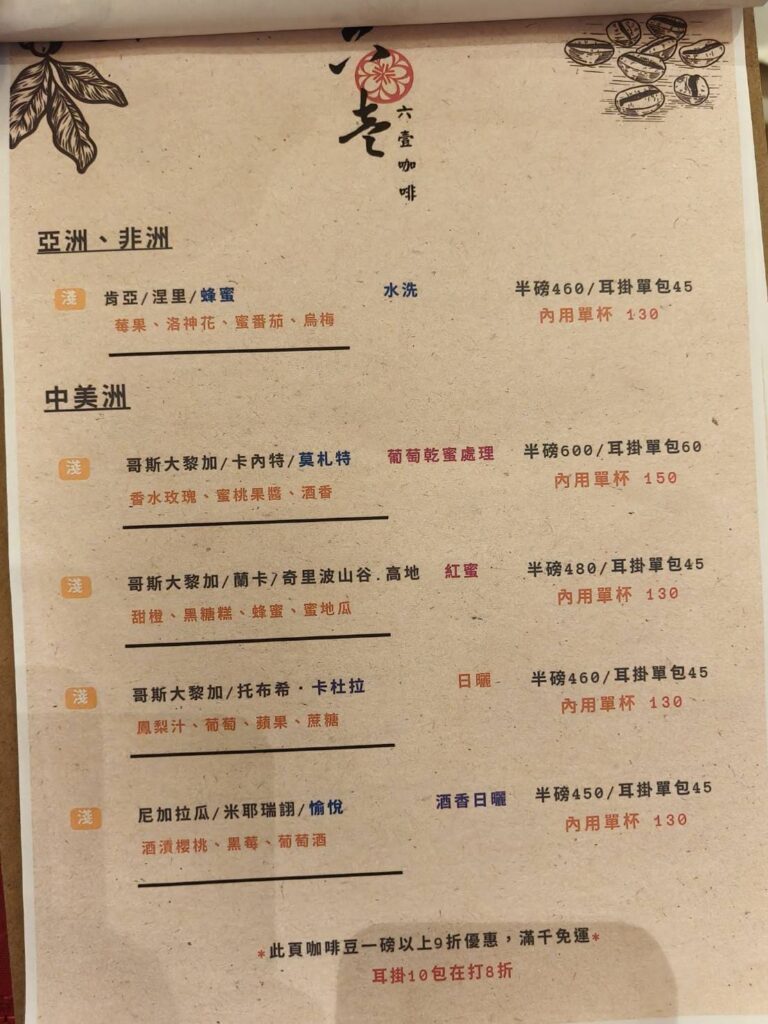 六壹
六壹咖啡
亞洲、非洲
淺 肯亞/涅里/蜂蜜 水洗 半磅460/耳掛單包45
莓果、洛神花、蜜番茄、烏梅 內用單杯 130
中美洲
淺 哥斯大黎加/卡內特/莫札特 葡萄乾蜜處理 半磅600/耳掛單包60
香水玫瑰、蜜桃果醬、酒香 內用單杯 150
淺 哥斯大黎加/蘭卡/奇里波山谷.高地 紅蜜 半磅480/耳掛單包45
甜橙、黑糖糕、蜂蜜、蜜地瓜 內用單杯 130
淺 哥斯大黎加/托布希·卡杜拉 日曬 半磅460/耳掛單包45
鳳梨汁、葡萄、蘋果、蔗糖 內用單杯 130
淺 尼加拉瓜/米耶瑞詡/愉悅 酒香日曬 半磅450/耳掛單包45
酒漬櫻桃、黑莓、葡萄酒 內用單杯 130
*此頁咖啡豆一磅以上9折優惠，滿千免運*
耳掛10包在打8折